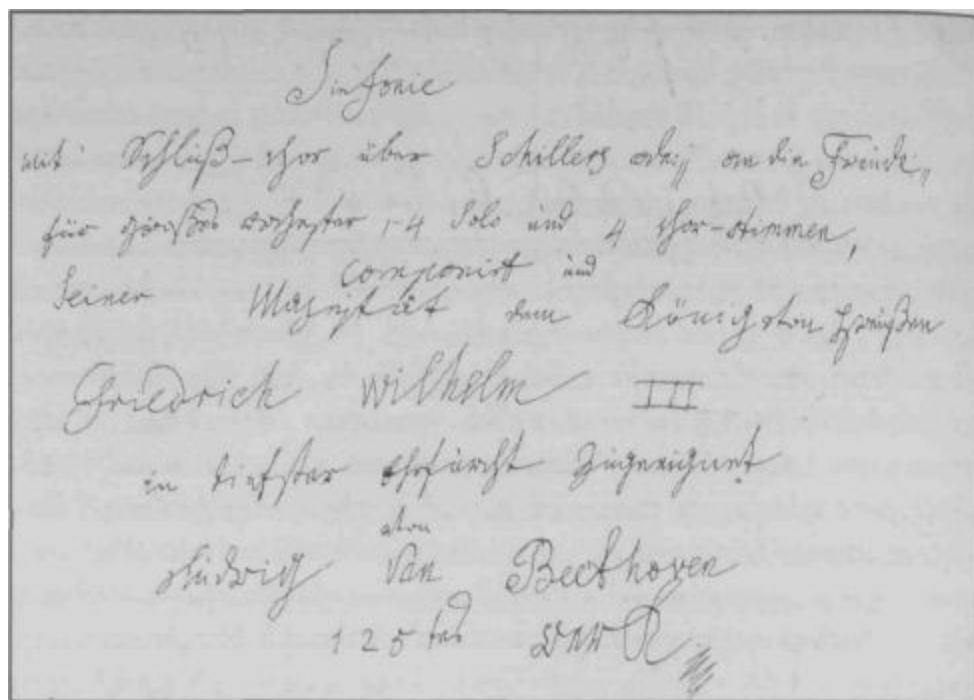 Sinfonie
mit Schluß-chor über Schillers ode: „an die Freude„
für großes orchester, 4 Solo und 4 chor-stimmen,
componirt und
Seiner Majestät dem König von Preußen
Friedrich Wilhelm III
in tiefster Ehrfurcht zugeeignet
von
Ludwig van Beethoven
125tes Werk